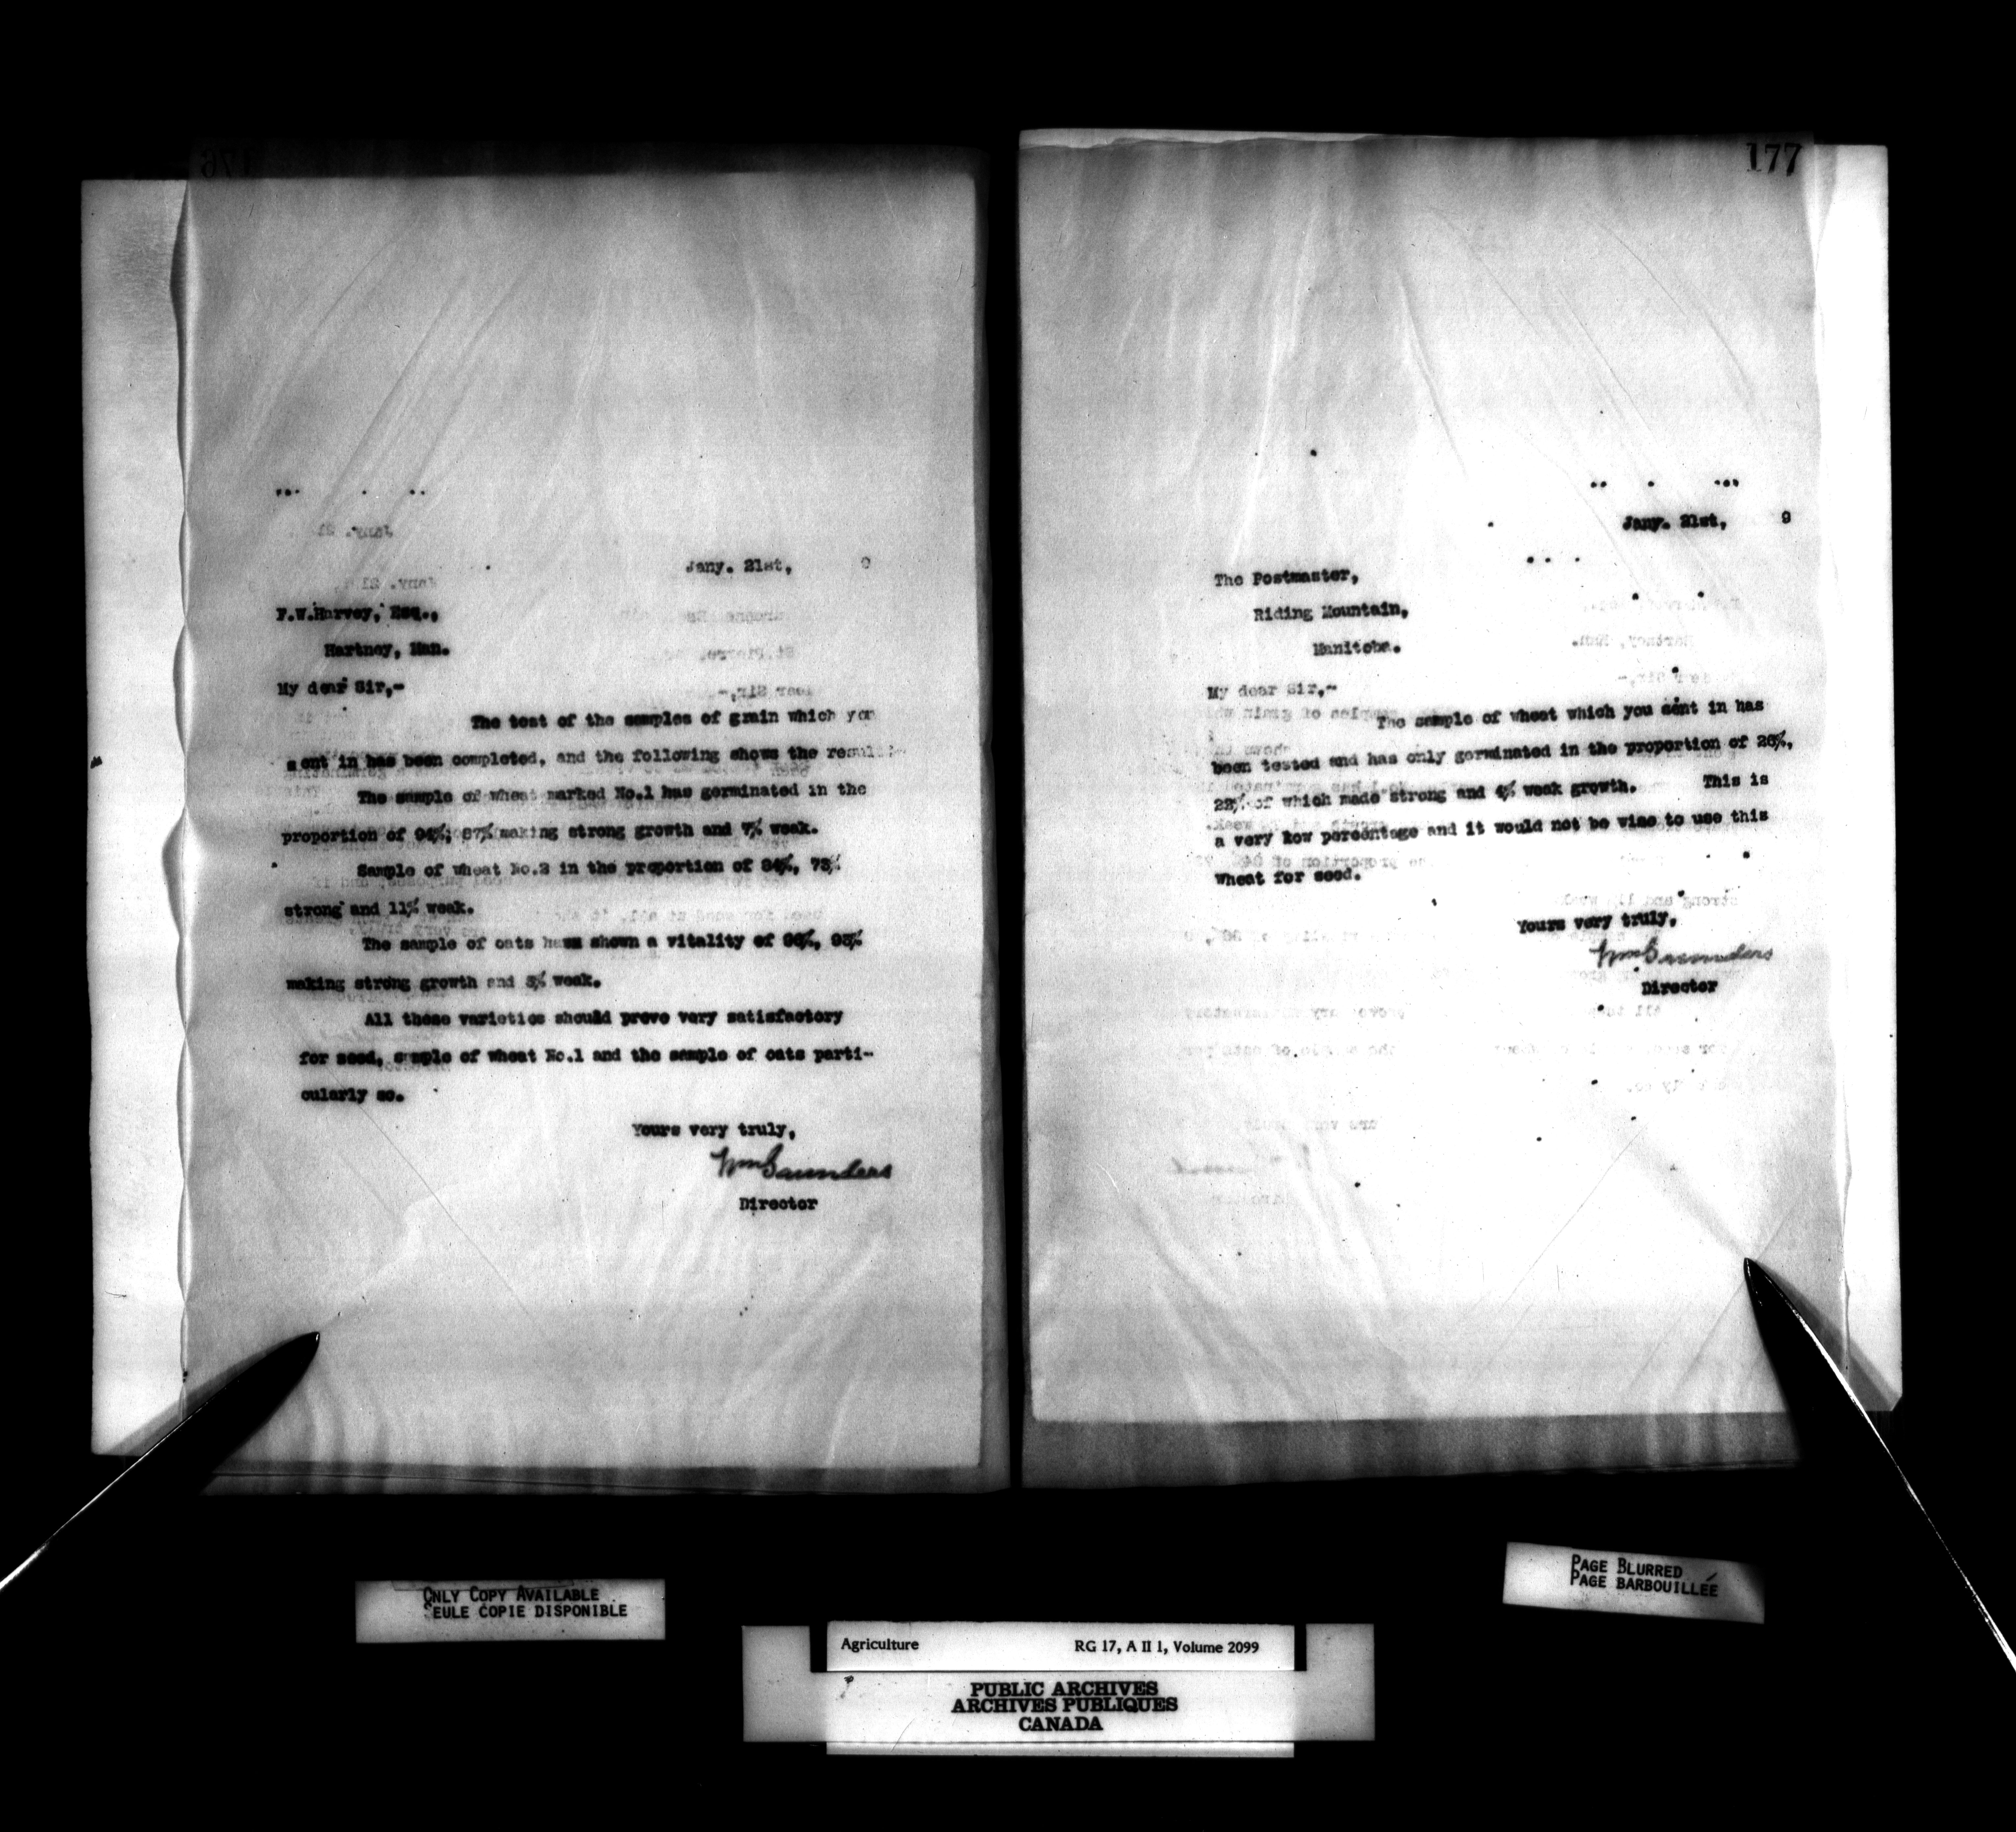 Jany. 21st, 9
F.W.Harvey, Esq.,
Hartney, Man.
My dear Sir,-
The test of the samples of grain which you
sent in has been completed, and the following shows the result:-
The sample of wheat marked No.1 has germinated in the
proportion of 94%; 87% making strong growth and 7% weak.
Sample of wheat No.2 in the proportion of 84%, 73%
strong and 11% weak.
The sample of oats have shown a vitality of 96%, 93%
making strong growth and 3% weak.
All these varieties should prove very satisfactory
for seed, sample of wheat No.1 and the sample of oats parti-
cularly so.
Yours very truly,
Wm Saunders
Director
177
Jany. 21st, 9
The Postmaster,
Riding Mountain,
Manitoba.
My dear Sir,-
The sample of wheat which you sent in has
been tested and has only germinated in the proportion of 26%,
22% of which made strong and 4% weak growth. This is
a very low percentage and it would not be wise to use this
wheat for seed.
Yours very truly,
Wm Saunders
Director
ONLY COPY AVAILABLE
SEULE COPIE DISPONIBLE
PAGE BLURRED
PAGE BARBOUILLÉE
Agriculture RG 17, A II 1, Volume 2099
PUBLIC ARCHIVES
ARCHIVES PUBLIQUES
CANADA